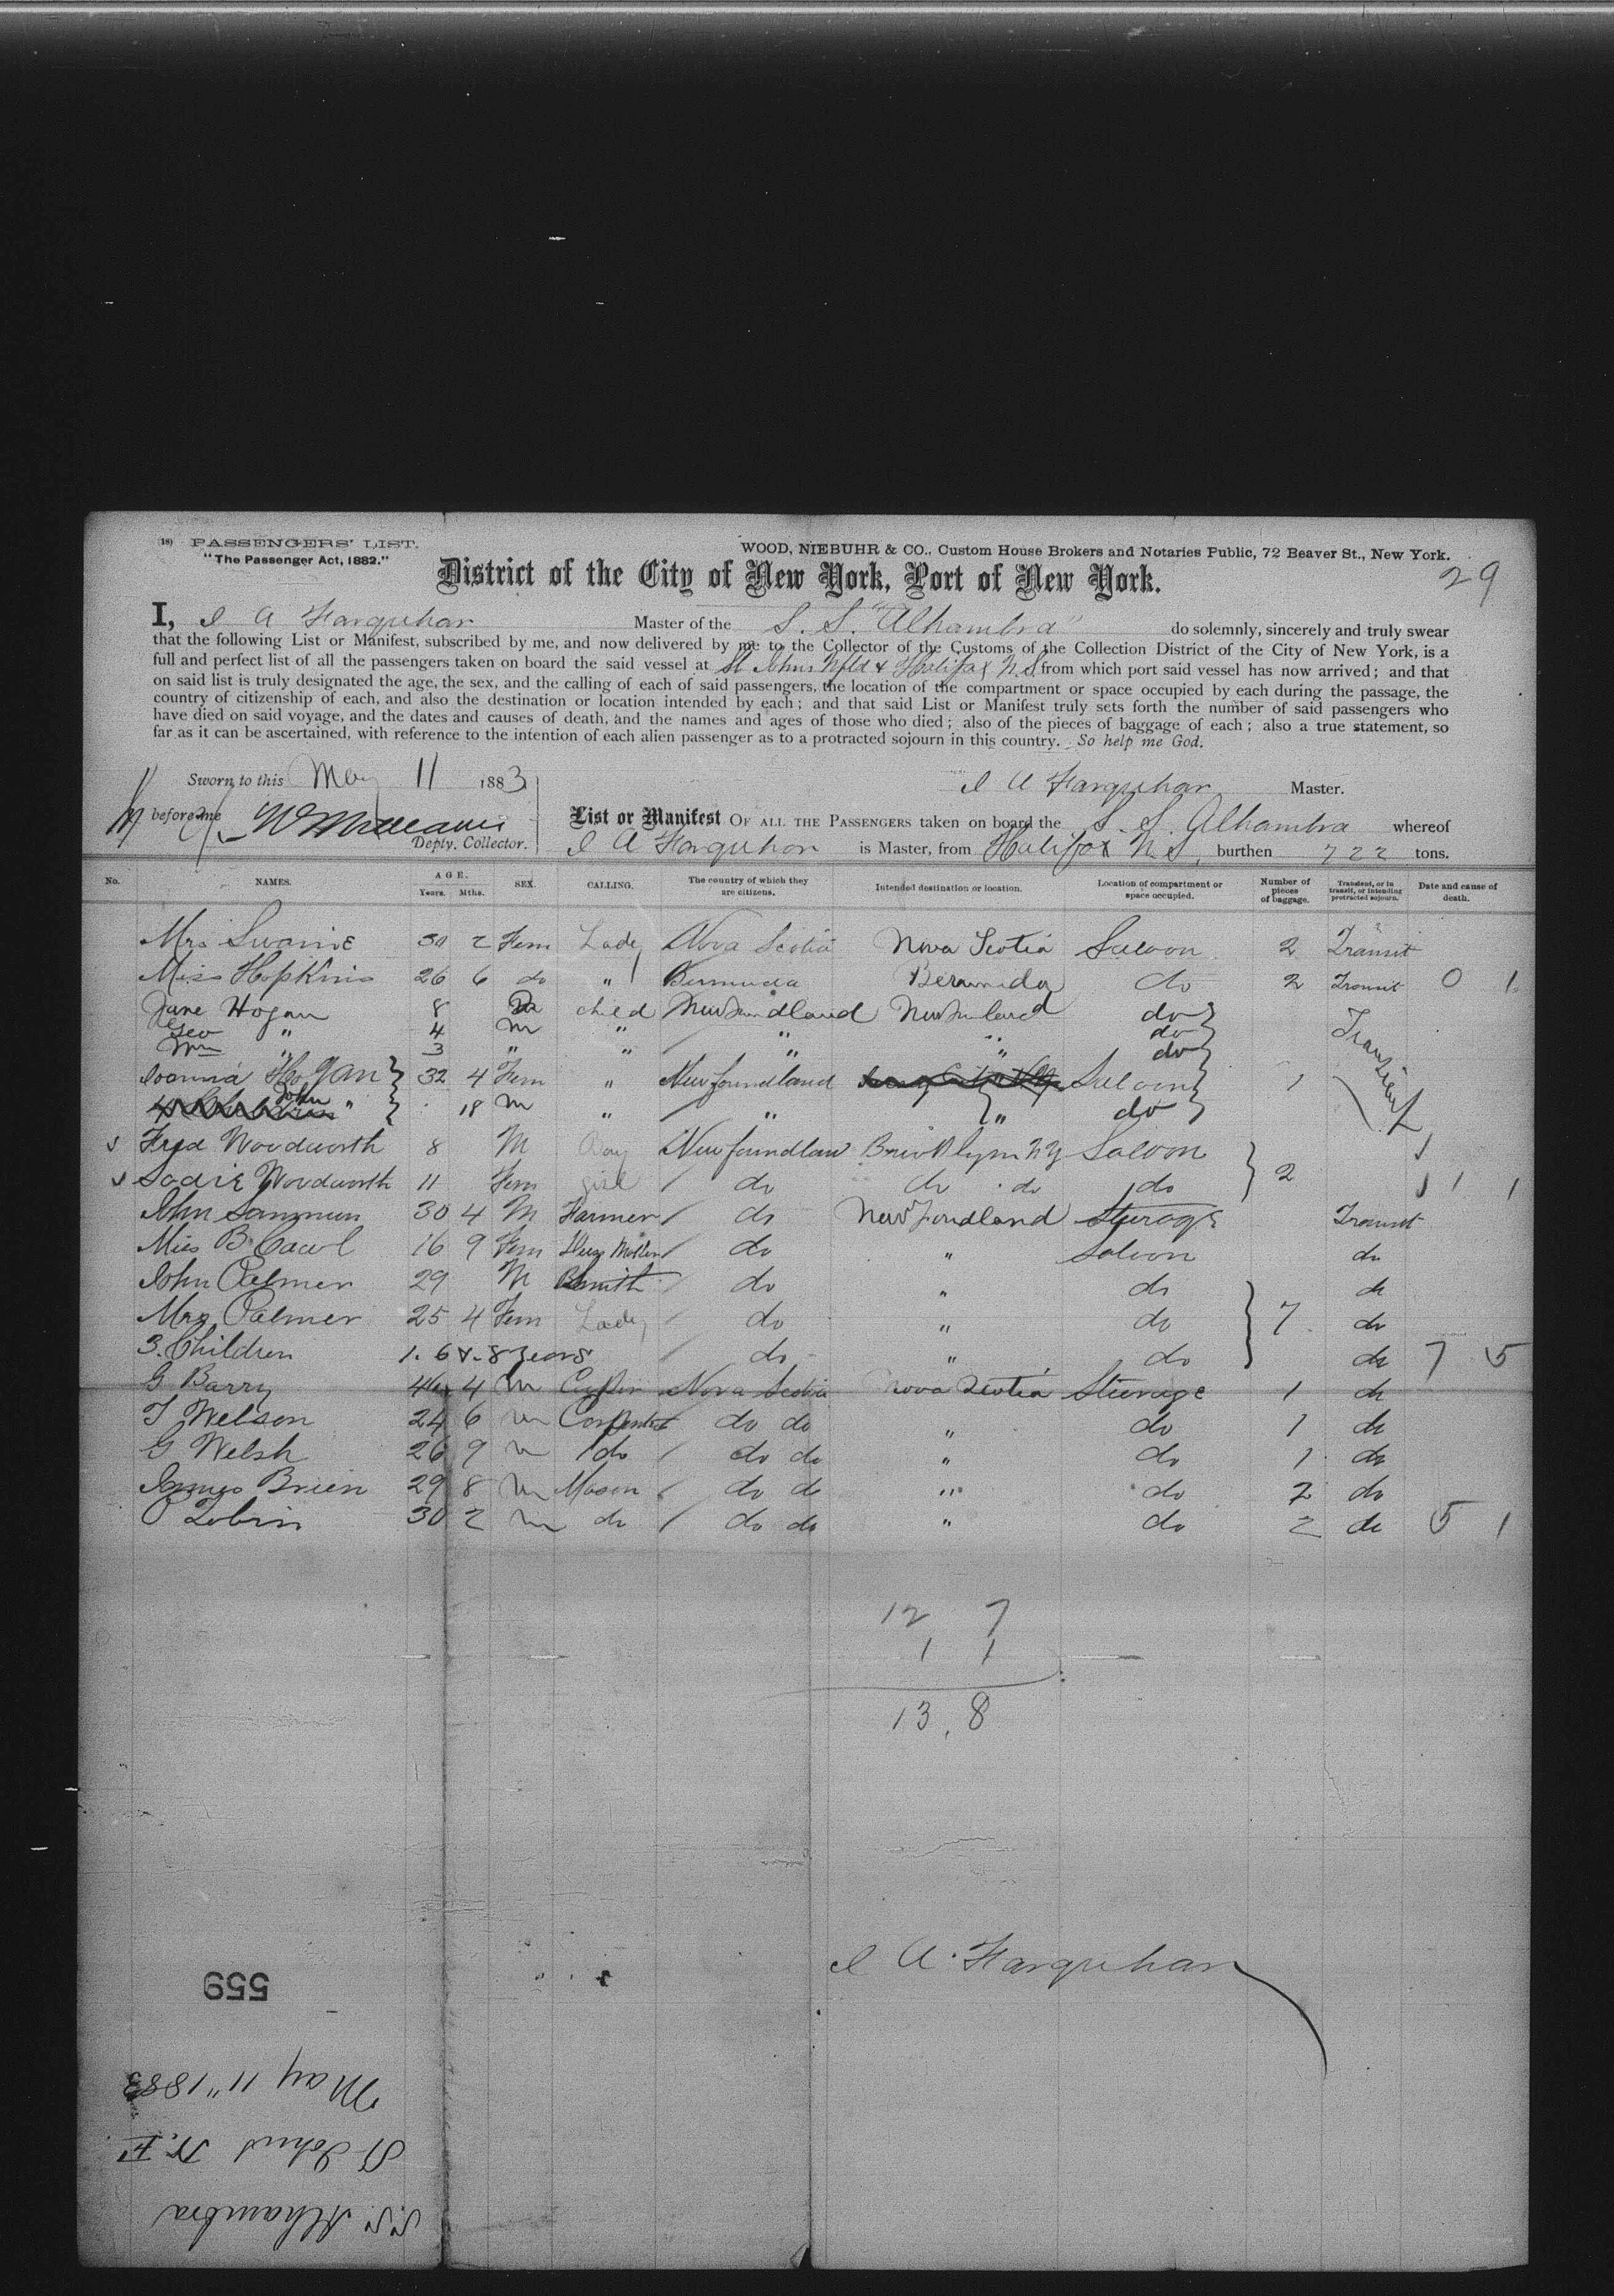 (18) PASSENGERS' LIST.
"The Passenger Act, 1882."
WOOD, NIEBUHR & CO., Custom House Brokers and Notaries Public, 72 Beaver St., New York.
29
District of the City of New York, Port of New York.
I, I A Farquhar Master of the S. S. "Alhambra" do solemnly, sincerely and truly swear
that the following List or Manifest, subscribed by me, and now delivered by me to the Collector of the Customs of the Collection District of the City of New York, is a
full and perfect list of all the passengers taken on board the said vessel at St Johns Nfld & Halifax N.S. from which port said vessel has now arrived; and that
on said list is truly designated the age, the sex, and the calling of each of said passengers, the location of the compartment or space occupied by each during the passage, the
country of citizenship of each, and also the destination or location intended by each; and that said List or Manifest truly sets forth the number of said passengers who
have died on said voyage, and the dates and causes of death, and the names and ages of those who died; also of the pieces of baggage of each; also a true statement, so
far as it can be ascertained, with reference to the intention of each alien passenger as to a protracted sojourn in this country. So help me God.
Sworn to this May 11 1883
I A Farquhar Master.
before me
Depty. Collector.
List or Manifest OF ALL THE PASSENGERS taken on board the S. S. Alhambra whereof
I A Farquhar is Master, from Halifax N.S. burthen 722 tons.
No. NAMES. AGE. Years. Mths. SEX. CALLING. The country of which they are citizens. Intended destination or location. Location of compartment or space occupied. Number of pieces of baggage. Transient, or in transit, or intending protracted sojourn. Date and cause of death.
Mrs 30 2 Fem Lady Nova Scotia Nova Scotia Saloon 2 Transit
Miss Hopkins 26 6 do " Bermuda Bermuda do 2 Transit 0 1
Jane Hogan 8 child Newfoundland do
Geo " 4 m " " " do
Wm " 3 " " " " do
Joanna Hogan 32 4 Fem " Newfoundland Saloon 1 Transient
John " 18 m " " " do
Fred Woodworth 8 M Boy Brooklyn NY Saloon
Sadie Woodworth 11 Fem girl do do do do 2 1 1
John Sammon 30 4 M Farmer do Steerage Transit
Miss B Cawl 16 9 Fem do " Saloon do
John Palmer 29 M do " do do
Mrs Palmer 25 4 Fem Lady do " do 7 do
3 Children 1. 6 & 8 years do " do do 7 5
G Barry 46 4 m Nova Scotia Nova Scotia Steerage 1 do
T Welson 24 6 m Carpenter do do " do 1 do
G Welsh 26 9 m do do do " do 1 do
James Brien 29 8 m Mason do do " do 2 do
P Tobin 30 2 m do do do " do 2 do 5 1
12 7
1 1
13 8
I A Farquhar
559
May 11" 1883
St Johns N.F.
S.S. Alhambra